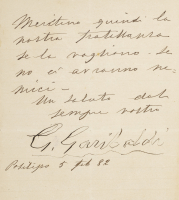 Meritino quindi la
nostra fratellanza
se la vogliono - se
no ci avranno ne-
mici -
Un saluto dal
sempre vostro
G. Garibaldi
Posilipo 5 feb 82